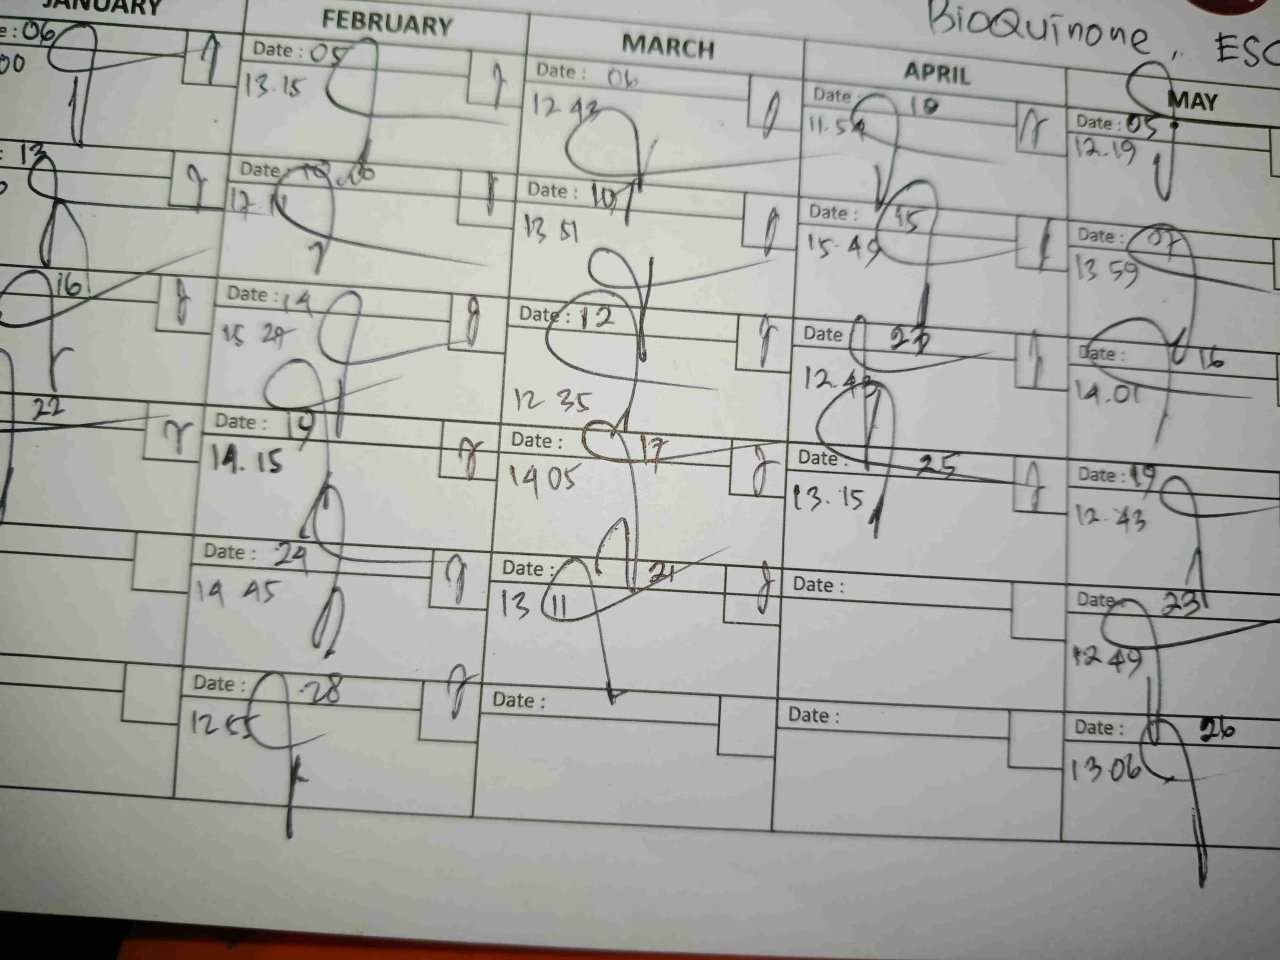 BioQuinone, ESC
JANUARY FEBRUARY MARCH APRIL MAY
e: 06 Date: 05 Date: 06 Date 10 Date: 05
00 13.15 12 43 11.54 12.19
: 13 Date: Date: 10 Date: 15 Date: 07
17. 13 51 15.49 13 59
16 Date: 14 Date: 12 Date 23 Date: 16
15 29 12 35 12.43 14.01
22 Date: 19 Date: 17 Date: 25 Date: 19
14.15 14 05 13.15 12.43
Date: 24 Date: 21 Date: Date 23
14 45 13 11 12 49
Date: 28 Date: Date: Date: 26
12 55 13 06